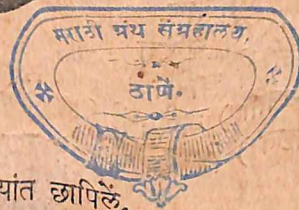 मराठी ग्रंथ संग्रहालय,
ठाणें.
यांत छापिलें.